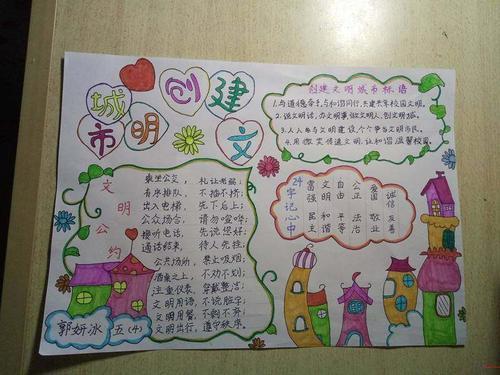 创建文
明城市
创建文明城市标语
1.与道德牵手,与和谐同行,共建共享校园文明。
2.说文明话,办文明事,做文明人,创文明城。
3.人人参与文明建设,个个争当文明市民。
4.用微笑传递文明,让和谐温馨校园。
文明公约
乘坐公交, 礼让老弱;
有序排队, 不插不挤;
出入电梯, 先下后上;
公众场合, 请勿喧哗;
接听电话, 先说您好;
通话结束, 待人先挂;
公共场所, 禁止吸烟;
酒席之上, 不劝不划;
注重仪表, 穿戴整洁;
文明用语, 不说脏字;
文明用餐, 不剩不弃;
文明出行, 遵守秩序。
24字记心中
富强 民主
文明 和谐
自由 平等
公正 法治
爱国 敬业
诚信 友善
郭妍冰 五(4)